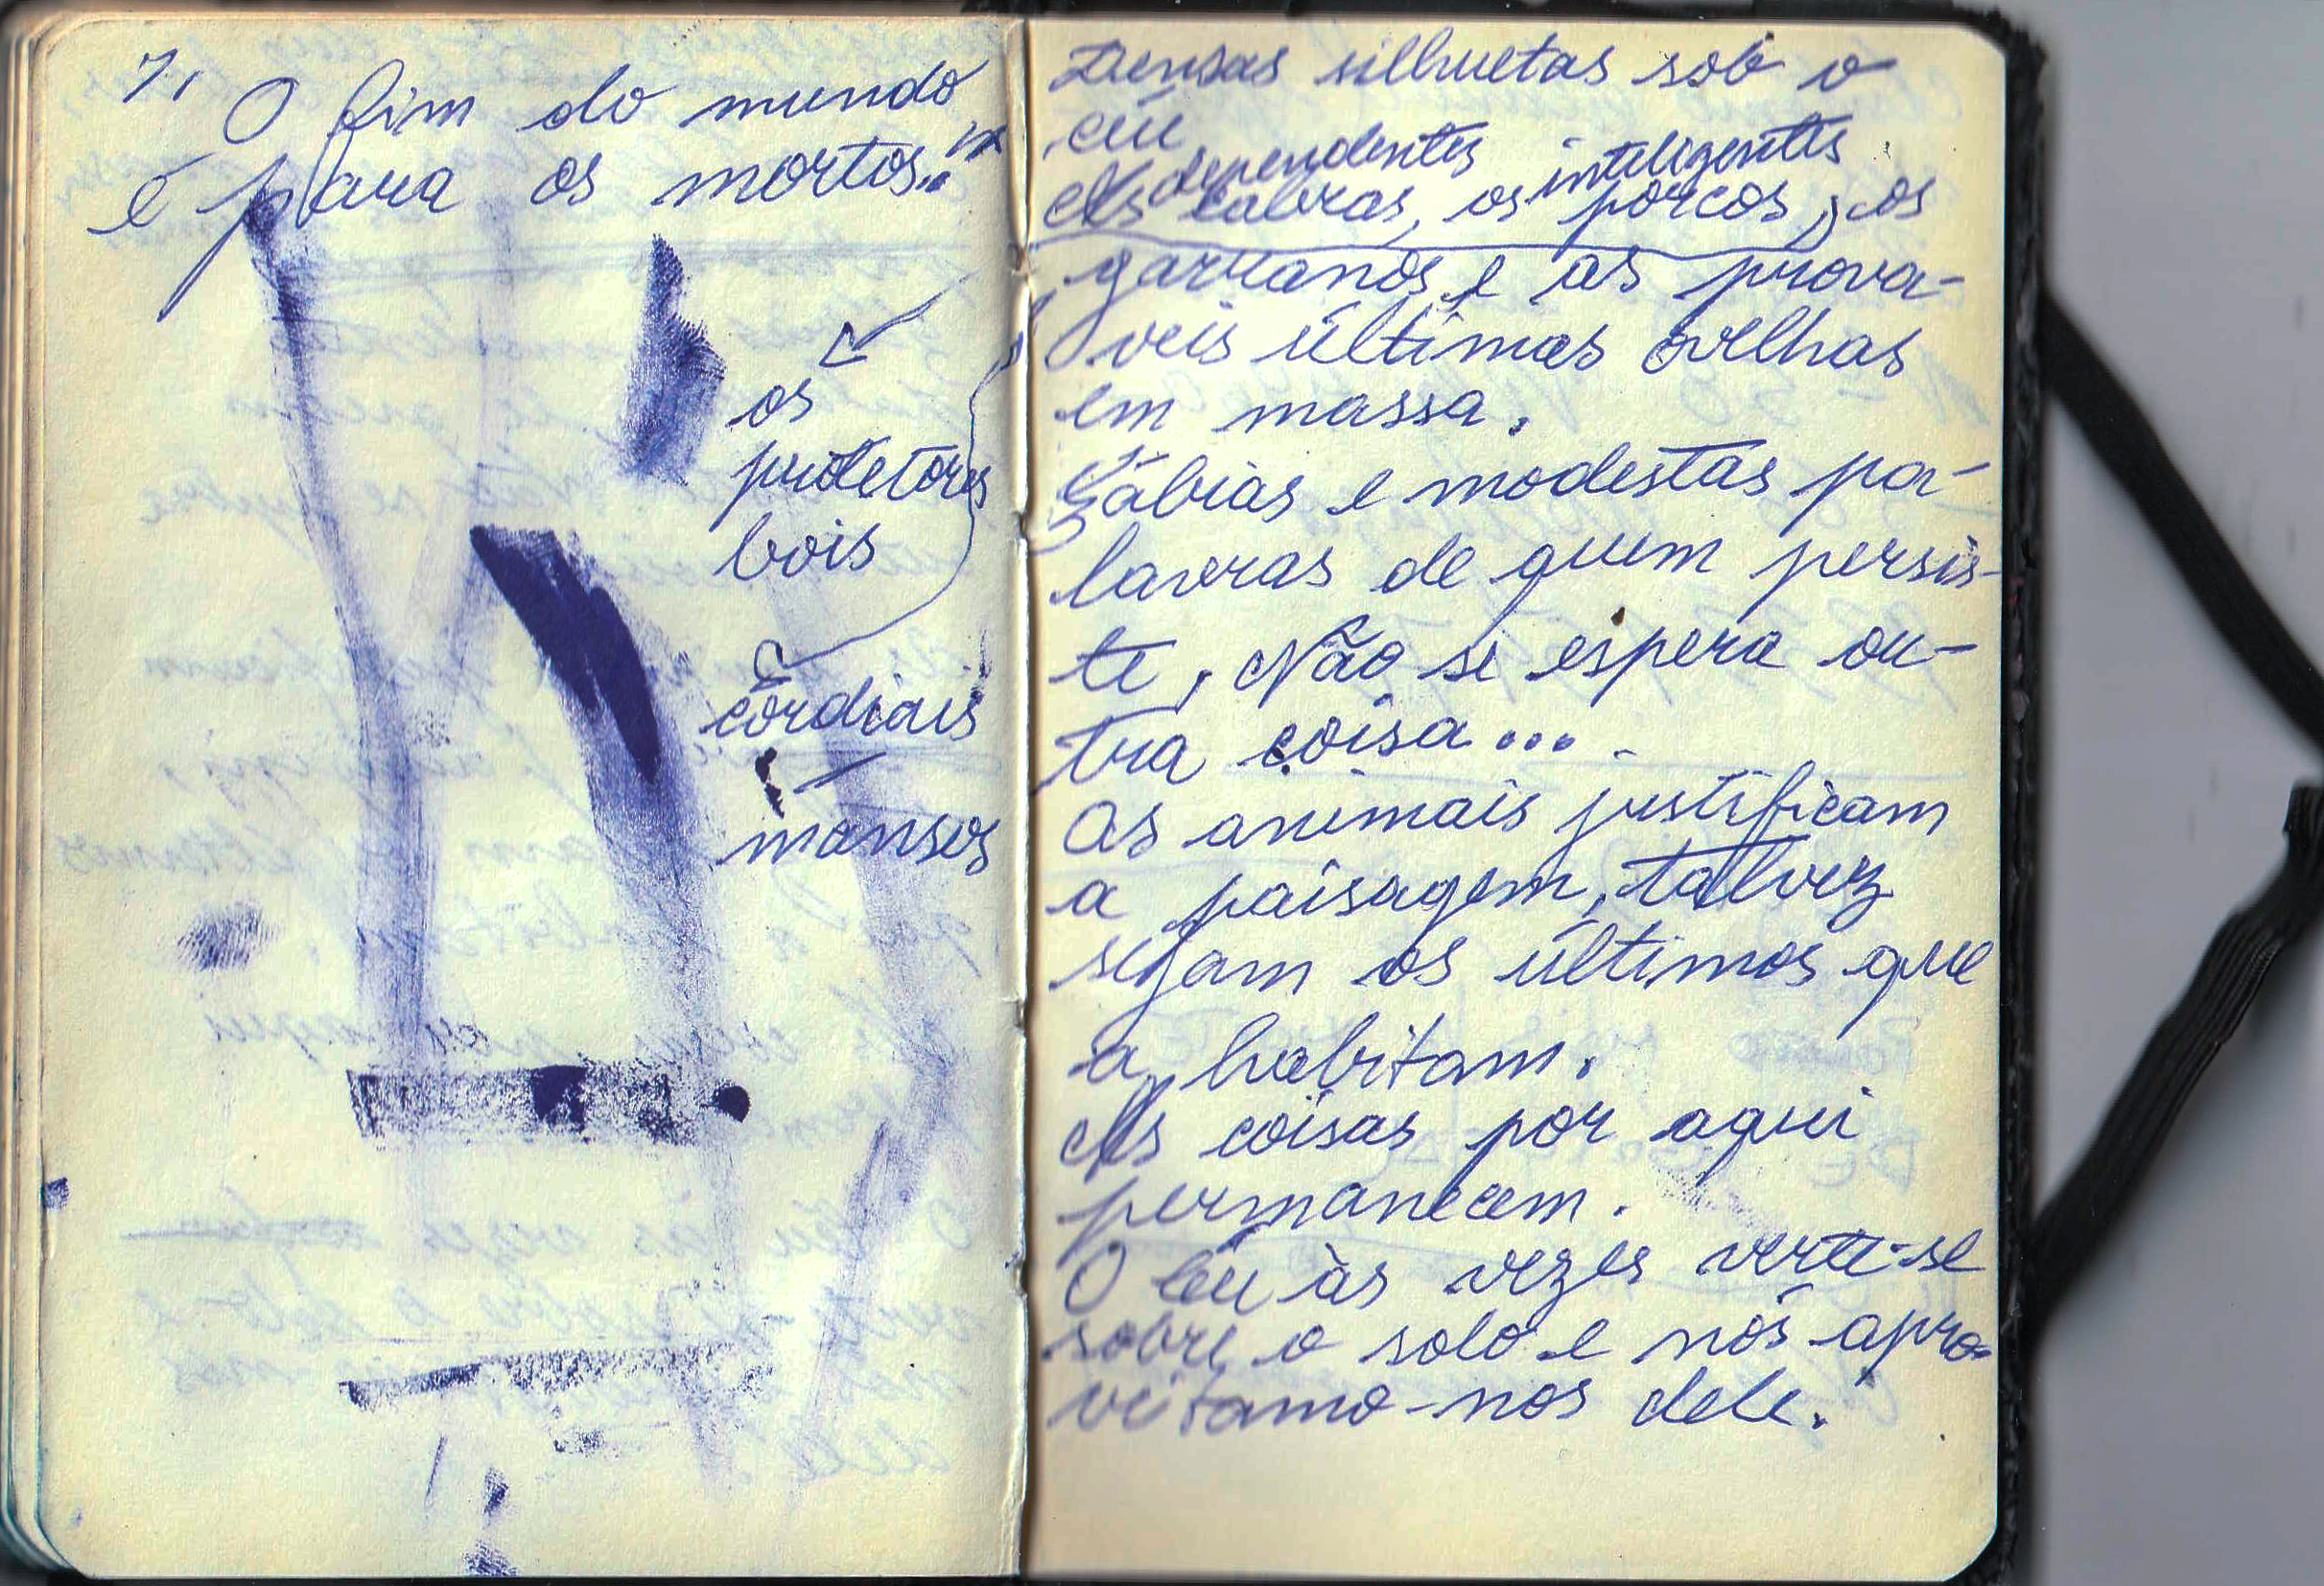 7.
O fim do mundo
é para os mortos..."
os
protetores
bois
cordiais
mansos
Densas silhuetas sob o
céu
dependentes inteligentes
As cabras, os porcos, os
garranos, e as prova-
veis últimas ovelhas
em massa.
Sábias e modestas pa-
lavras de quem persis-
te, Não se espera ou-
tra coisa....
Os animais justificam
a paisagem, talvez
sejam os últimos que
a habitam.
As coisas por aqui
permanecem.
O céu às vezes verte-se
sobre o solo e nós apro-
veitamo-nos dele.